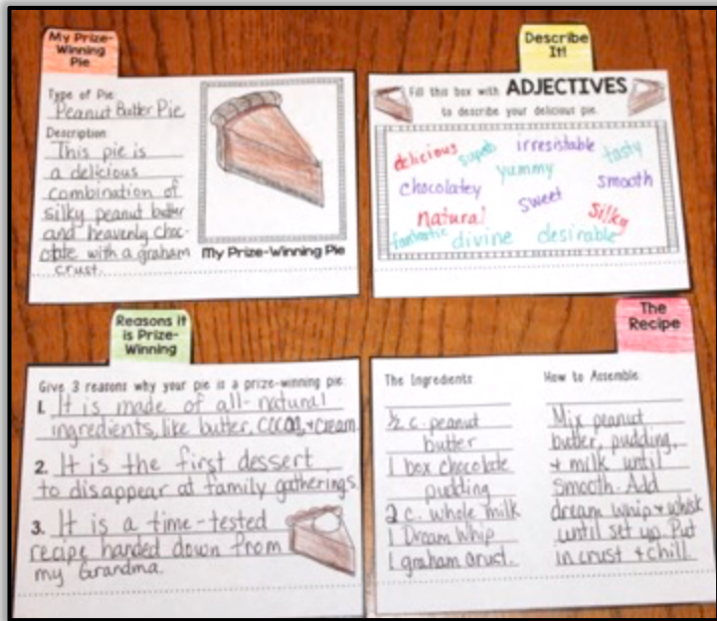 My Prize-
Winning
Pie
Type of Pie
Peanut Butter Pie
Description
This pie is
a delicious
combination of
silky peanut butter
and heavenly choc-
olate with a graham
crust.
My Prize-Winning Pie
Describe
It!
Fill this box with ADJECTIVES
to describe your delicious pie.
delicious superb irresistable tasty
yummy
chocolatey smooth
sweet
natural silky
fantastic divine desirable
Reasons it
is Prize-
Winning
Give 3 reasons why your pie is a prize-winning pie.
1. It is made of all-natural
ingredients, like butter, cocoa, + cream.
2. It is the first dessert
to disappear at family gatherings.
3. It is a time-tested
recipe handed down from
my Grandma.
The
Recipe
The Ingredients
1/2 c. peanut
butter
1 box chocolate
pudding
2 c. whole milk
1 Dream Whip
1 graham crust.
How to Assemble
Mix peanut
butter, pudding,
+ milk until
smooth. Add
dream whip + whisk
until set up. Put
in crust + chill.